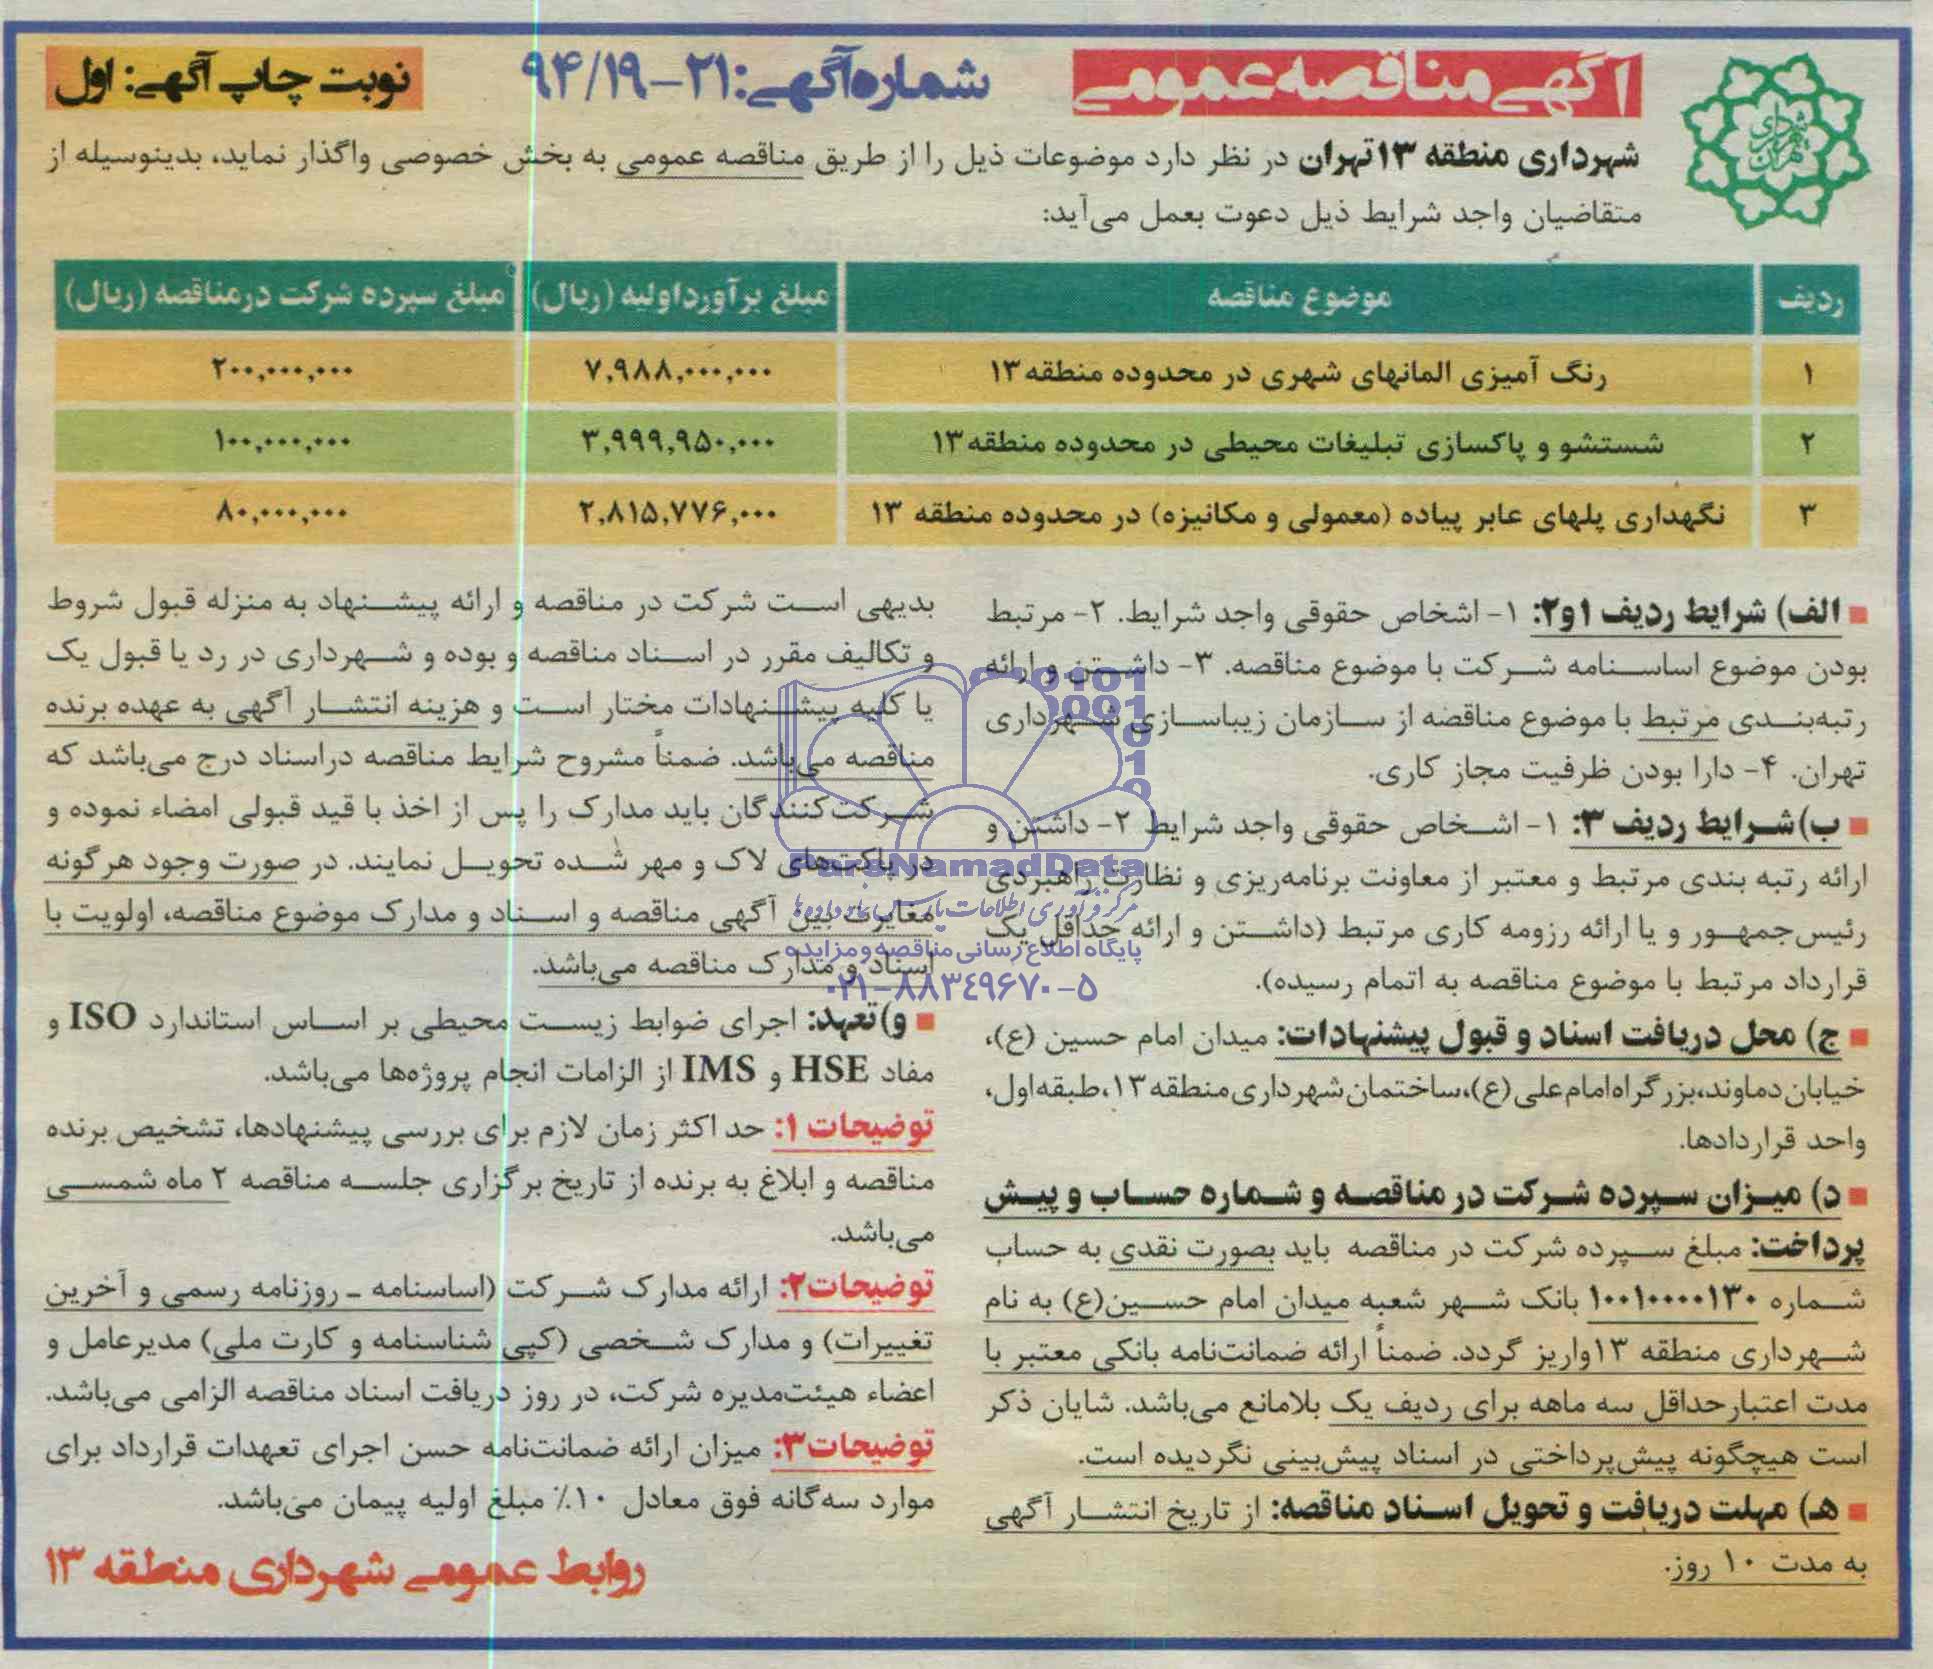 آگهی مناقصه عمومی
شماره آگهی: ۲۱-۹۴/۱۹
نوبت چاپ آگهی: اول
شهرداری تهران
شهرداری منطقه ۱۳ تهران در نظر دارد موضوعات ذیل را از طریق مناقصه عمومی به بخش خصوصی واگذار نماید، بدینوسیله از
متقاضیان واجد شرایط ذیل دعوت بعمل می‌آید:
ردیف موضوع مناقصه مبلغ برآورد اولیه (ریال) مبلغ سپرده شرکت در مناقصه (ریال)
۱ رنگ آمیزی المانهای شهری در محدوده منطقه ۱۳ ۷,۹۸۸,۰۰۰,۰۰۰ ۲۰۰,۰۰۰,۰۰۰
۲ شستشو و پاکسازی تبلیغات محیطی در محدوده منطقه ۱۳ ۳,۹۹۹,۹۵۰,۰۰۰ ۱۰۰,۰۰۰,۰۰۰
۳ نگهداری پلهای عابر پیاده (معمولی و مکانیزه) در محدوده منطقه ۱۳ ۲,۸۱۵,۷۷۶,۰۰۰ ۸۰,۰۰۰,۰۰۰
الف) شرایط ردیف ۱و۲: ۱- اشخاص حقوقی واجد شرایط. ۲- مرتبط
بودن موضوع اساسنامه شرکت با موضوع مناقصه. ۳- داشتن و ارائه
رتبه‌بندی مرتبط با موضوع مناقصه از سازمان زیباسازی شهرداری
تهران. ۴- دارا بودن ظرفیت مجاز کاری.
ب) شرایط ردیف ۳: ۱- اشخاص حقوقی واجد شرایط ۲- داشتن و
ارائه رتبه بندی مرتبط و معتبر از معاونت برنامه‌ریزی و نظارت راهبردی
رئیس‌جمهور و یا ارائه رزومه کاری مرتبط (داشتن و ارائه حداقل یک
قرارداد مرتبط با موضوع مناقصه به اتمام رسیده).
ج) محل دریافت اسناد و قبول پیشنهادات: میدان امام حسین (ع)،
خیابان دماوند، بزرگراه امام علی (ع)، ساختمان شهرداری منطقه ۱۳، طبقه اول،
واحد قراردادها.
د) میزان سپرده شرکت در مناقصه و شماره حساب و پیش
پرداخت: مبلغ سپرده شرکت در مناقصه باید بصورت نقدی به حساب
شماره ۱۰۰۱۰۰۰۰۱۳۰ بانک شهر شعبه میدان امام حسین(ع) به نام
شهرداری منطقه ۱۳ واریز گردد. ضمناً ارائه ضمانت‌نامه بانکی معتبر با
مدت اعتبار حداقل سه ماهه برای ردیف یک بلامانع می‌باشد. شایان ذکر
است هیچگونه پیش‌پرداختی در اسناد پیش‌بینی نگردیده است.
هـ) مهلت دریافت و تحویل اسناد مناقصه: از تاریخ انتشار آگهی
به مدت ۱۰ روز.
بدیهی است شرکت در مناقصه و ارائه پیشنهاد به منزله قبول شروط
و تکالیف مقرر در اسناد مناقصه و بوده و شهرداری در رد یا قبول یک
یا کلیه پیشنهادات مختار است و هزینه انتشار آگهی به عهده برنده
مناقصه می‌باشد. ضمناً مشروح شرایط مناقصه دراسناد درج می‌باشد که
شرکت‌کنندگان باید مدارک را پس از اخذ با قید قبولی امضاء نموده و
در پاکت‌های لاک و مهر شده تحویل نمایند. در صورت وجود هرگونه
مغایرت بین آگهی مناقصه و اسناد و مدارک موضوع مناقصه، اولویت با
اسناد و مدارک مناقصه می‌باشد.
و) تعهد: اجرای ضوابط زیست محیطی بر اساس استاندارد ISO و
مفاد HSE و IMS از الزامات انجام پروژه‌ها می‌باشد.
توضیحات ۱: حد اکثر زمان لازم برای بررسی پیشنهادها، تشخیص برنده
مناقصه و ابلاغ به برنده از تاریخ برگزاری جلسه مناقصه ۲ ماه شمسی
می‌باشد.
توضیحات۲: ارائه مدارک شرکت (اساسنامه ـ روزنامه رسمی و آخرین
تغییرات) و مدارک شخصی (کپی شناسنامه و کارت ملی) مدیرعامل و
اعضاء هیئت‌مدیره شرکت، در روز دریافت اسناد مناقصه الزامی می‌باشد.
توضیحات۳: میزان ارائه ضمانت‌نامه حسن اجرای تعهدات قرارداد برای
موارد سه‌گانه فوق معادل ۱۰٪ مبلغ اولیه پیمان می‌باشد.
روابط عمومی شهرداری منطقه ۱۳
ParsNamadData
مرکز فرآوری اطلاعات پارس نماد داده‌ها
پایگاه اطلاع رسانی مناقصه و مزایده
۰۲۱-۸۸۳۴۹۶۷۰-۵